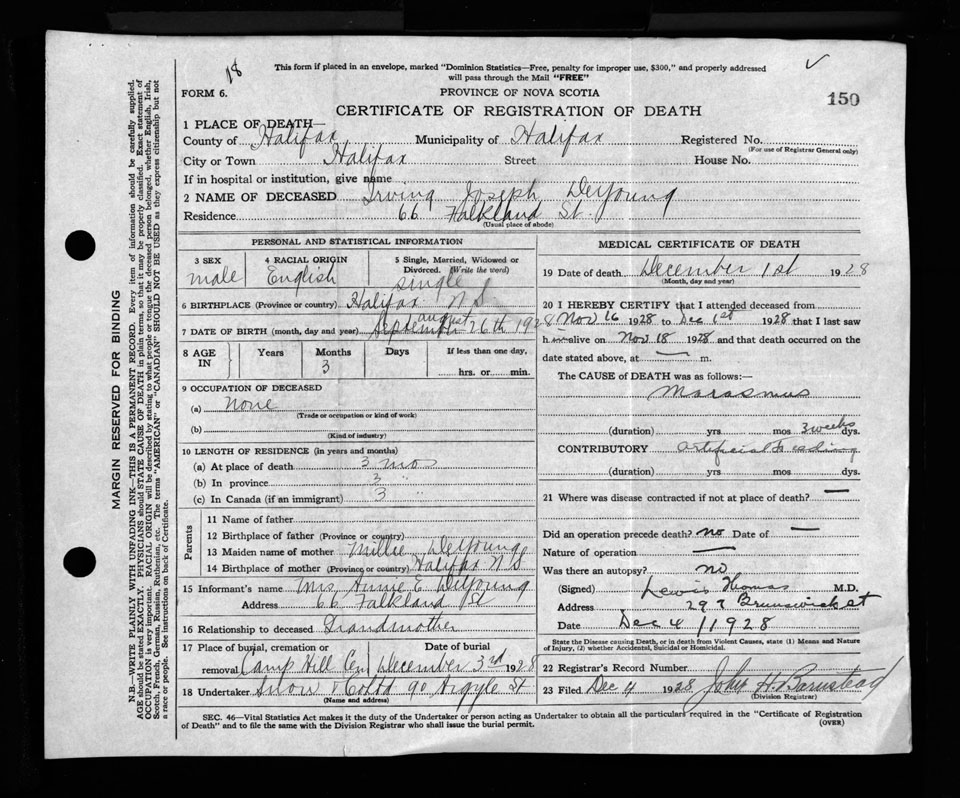 18
This form if placed in an envelope, marked "Dominion Statistics—Free, penalty for improper use, $300," and properly addressed
will pass through the Mail "FREE"
FORM 6.
PROVINCE OF NOVA SCOTIA
150
CERTIFICATE OF REGISTRATION OF DEATH
1 PLACE OF DEATH—
County of Halifax Municipality of Halifax Registered No.
(For use of Registrar General only)
City or Town Halifax Street House No.
If in hospital or institution, give name
2 NAME OF DECEASED Irving Joseph DeYoung
Residence 66 Falkland St.
(Usual place of abode)
PERSONAL AND STATISTICAL INFORMATION
3 SEX 4 RACIAL ORIGIN 5 Single, Married, Widowed or
Divorced. (Write the word)
male English single
6 BIRTHPLACE (Province or country) Halifax N S
august
7 DATE OF BIRTH (month, day and year) September 26th 1928
8 AGE IN Years Months Days If less than one day,
3 hrs. or min.
9 OCCUPATION OF DECEASED
(a) None
(Trade or occupation or kind of work)
(b)
(Kind of industry)
10 LENGTH OF RESIDENCE (in years and months)
(a) At place of death 3 mos
(b) In province 3 "
(c) In Canada (if an immigrant) 3 "
Parents
11 Name of father
12 Birthplace of father (Province or country)
13 Maiden name of mother Millie DeYoung
14 Birthplace of mother (Province or country) Halifax N S
15 Informant's name Mrs Annie E. DeYoung
Address 66 Falkland St
16 Relationship to deceased Grandmother
17 Place of burial, cremation or Date of burial
removal Camp Hill Cem December 3rd 1928
18 Undertaker Snow & Co Ltd 90 Argyle St
(Name and address)
MEDICAL CERTIFICATE OF DEATH
19 Date of death December 1st 1928
(Month, day and year)
20 I HEREBY CERTIFY that I attended deceased from
Nov 16 1928 to Dec 1st 1928 that I last saw
h alive on Nov 18 1928 and that death occurred on the
date stated above, at — m.
The CAUSE OF DEATH was as follows:—
Marasmus
(duration) yrs mos 3 weeks dys.
CONTRIBUTORY Artificial Feeding
(duration) yrs mos dys.
21 Where was disease contracted if not at place of death? —
Did an operation precede death? no Date of —
Nature of operation —
Was there an autopsy? no
(Signed) Lewis Thomas M.D.
Address 297 Brunswick st
Date Dec 4/1928
State the Disease causing Death, or in death from Violent Causes, state (1) Means and Nature
of Injury, (2) whether Accidental, Suicidal or Homicidal.
22 Registrar's Record Number
23 Filed Dec 4 1928 John H. Barnstead
(Division Registrar)
SEC. 46—Vital Statistics Act makes it the duty of the Undertaker or person acting as Undertaker to obtain all the particulars required in the "Certificate of Registration
of Death" and to file the same with the Division Registrar who shall issue the burial permit.
(OVER)
MARGIN RESERVED FOR BINDING
N.B.—WRITE PLAINLY WITH UNFADING INK—THIS IS A PERMANENT RECORD. Every item of information should be carefully supplied.
AGE should be stated EXACTLY. PHYSICIANS should STATE CAUSE OF DEATH in plain terms, so that it may be properly classified. Exact statement of
OCCUPATION is very important. RACIAL ORIGIN will be described by stating to what people or tongue the deceased person belonged, whether English, Irish,
Scotch, French, German, Russian, Ruthenian, etc. The terms "AMERICAN" or "CANADIAN" SHOULD NOT BE USED as they express citizenship but not
a race or people. See instructions on back of Certificate.